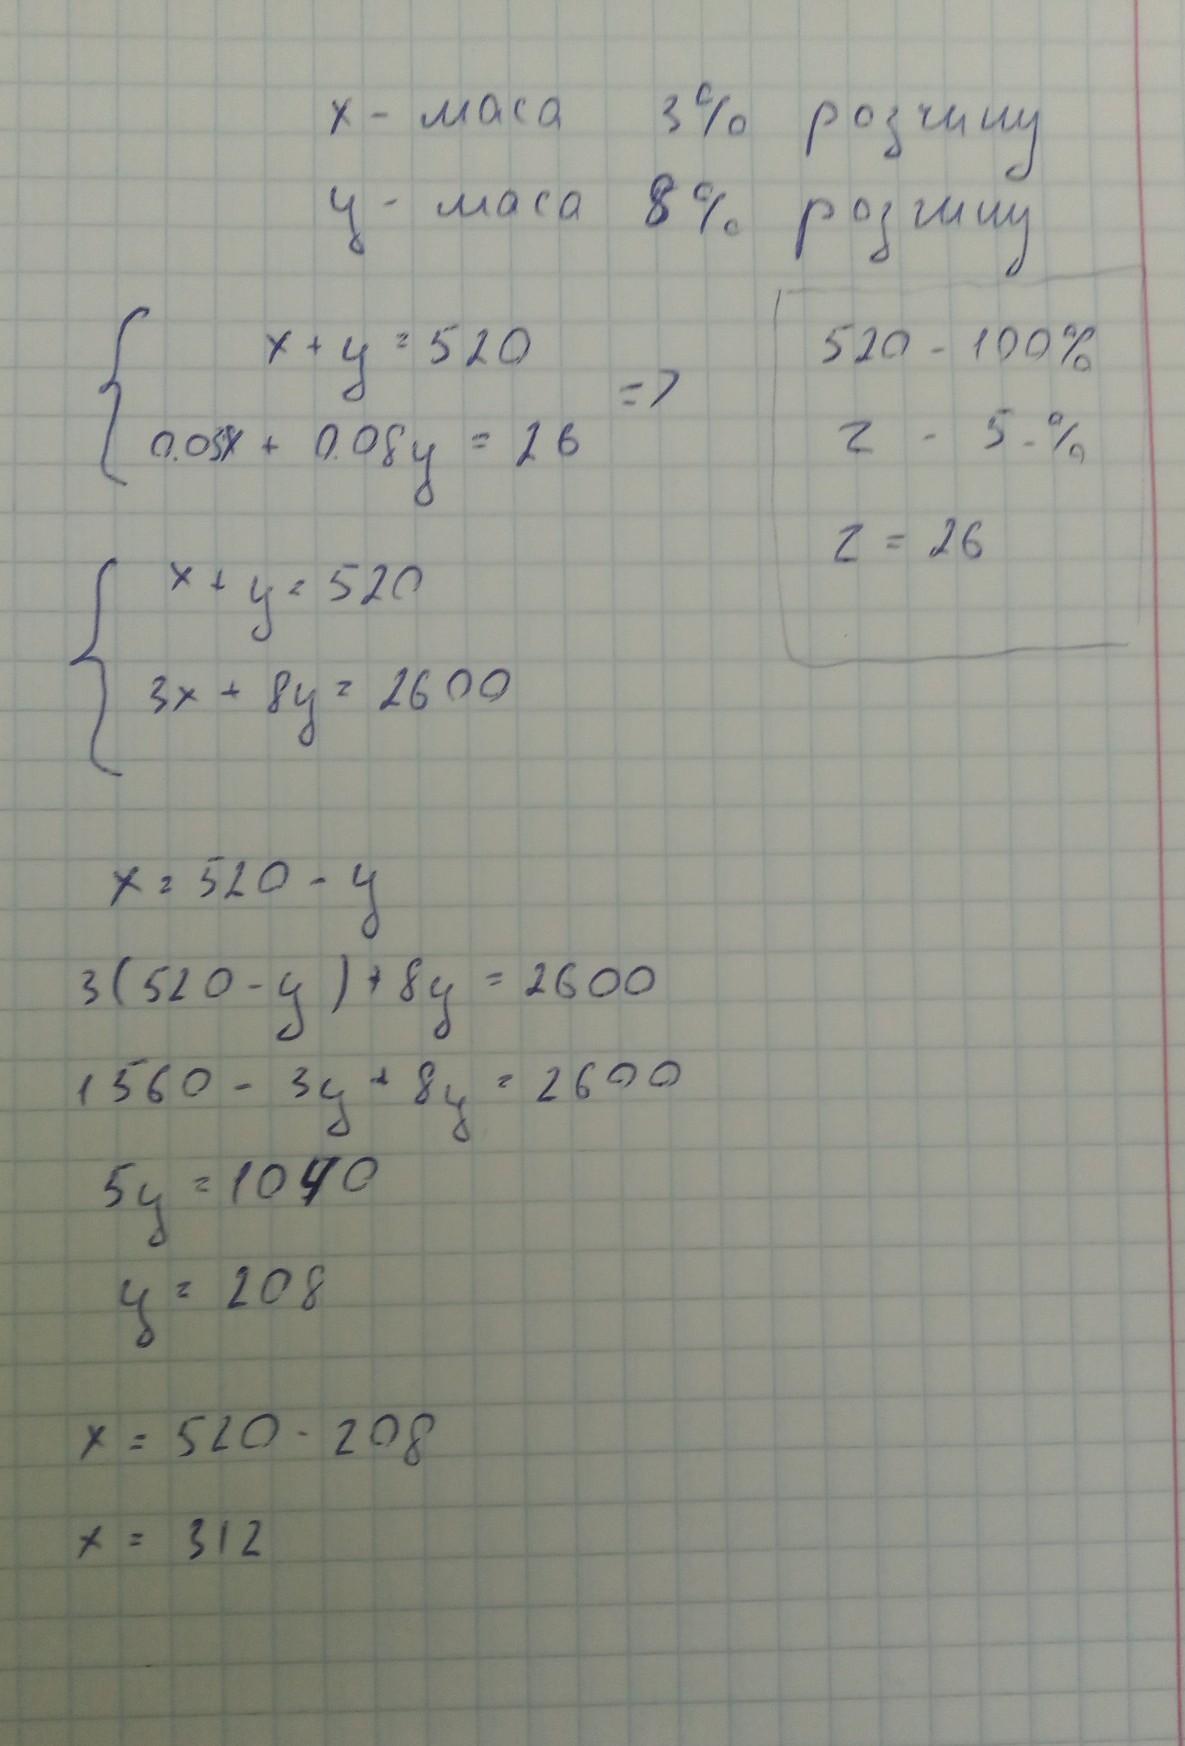 x - маса 3% розчину
y - маса 8% розчину
x + y = 520
0.03x + 0.08y = 26
=>
520 - 100%
z - 5%
z = 26
x + y = 520
3x + 8y = 2600
x = 520 - y
3(520 - y) + 8y = 2600
1560 - 3y + 8y = 2600
5y = 1040
y = 208
x = 520 - 208
x = 312